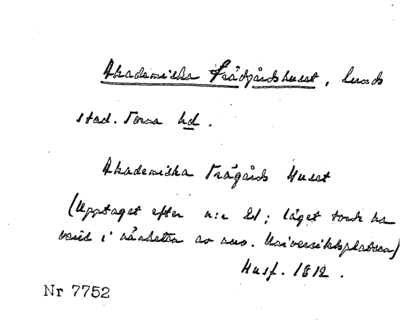 Akademiska Trädgårdshuset, Lunds
stad. Torna hd.
Akademiska Trägårds Huset
(Upptaget efter n:r 21; läget torde ha
varit i närheten av nuv. Universitetsplatsen)
Husf. 1812.
Nr 7752